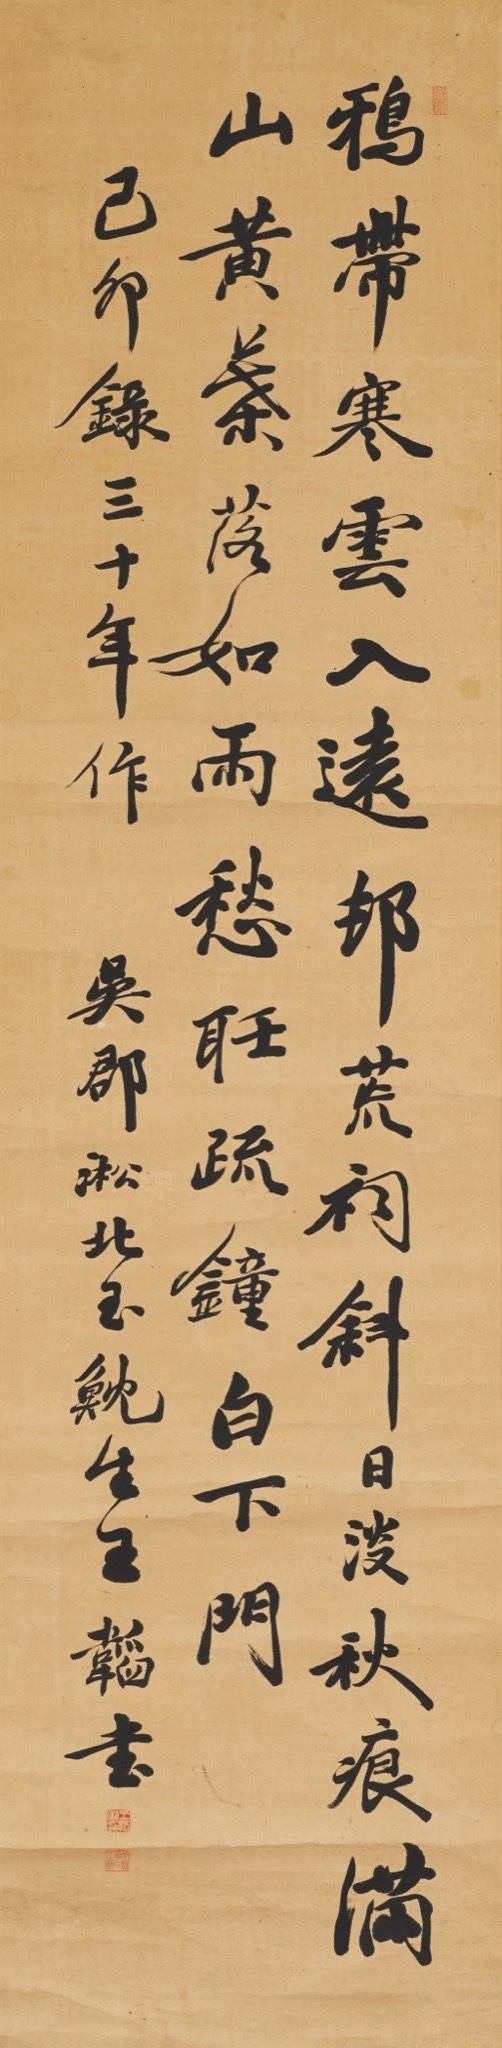 鴉帶寒雲入遠邨荒祠斜日淡秋痕滿
山黃葉落如雨愁聽疏鐘白下門
己卯錄三十年作 吳郡淞北玉魫生王韜書